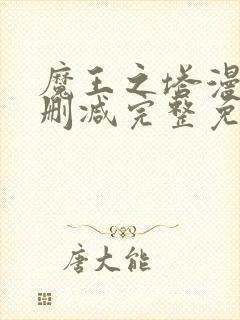 魔王之塔漫
删减完整免
唐大能